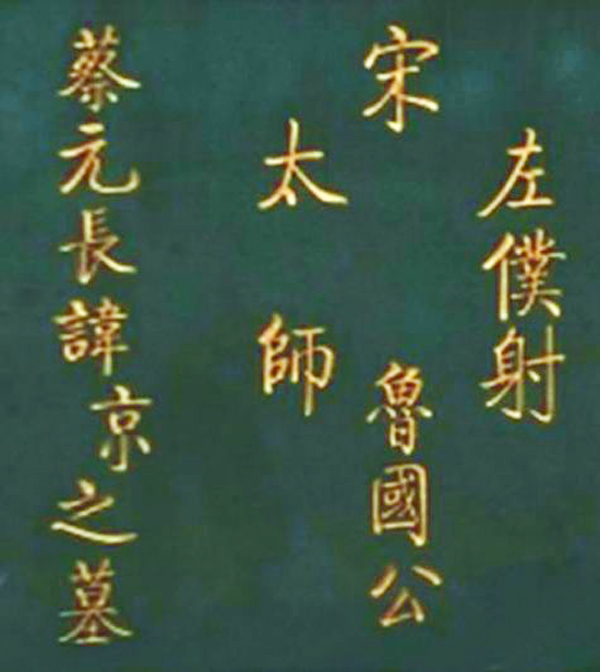 左僕射
宋 魯國公
太師
蔡元長諱京之墓